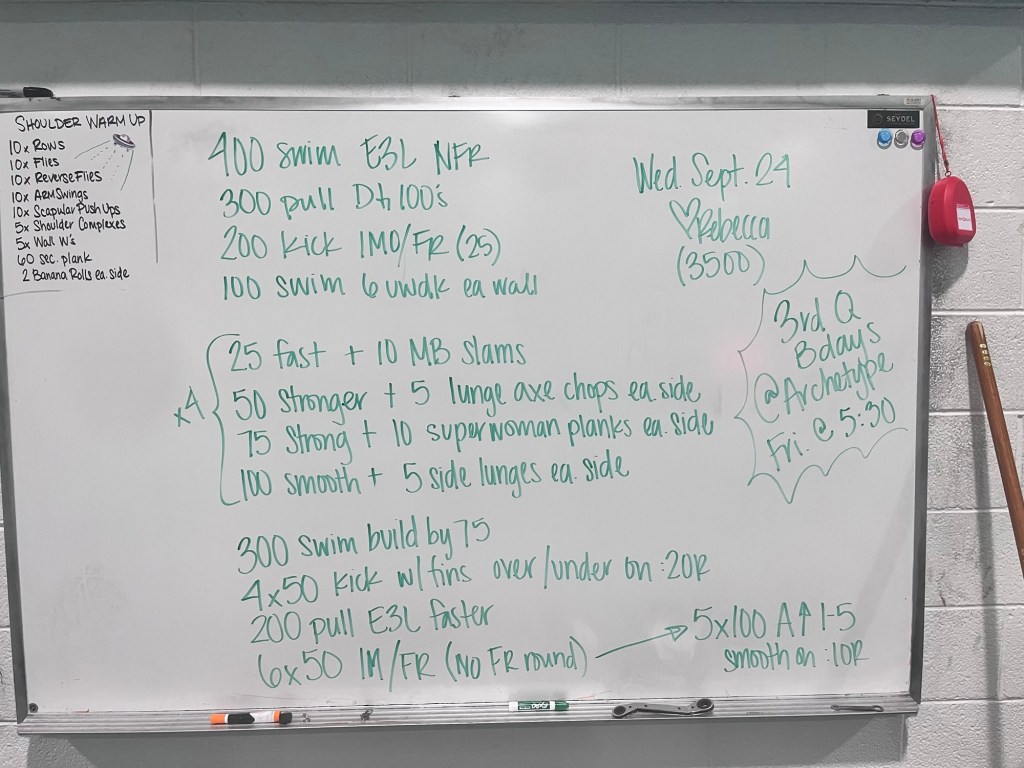 SHOULDER WARM UP
10x Rows
10x Flies
10x Reverse Flies
10x Arm Swings
10x Scapular Push Ups
5x Shoulder Complexes
5x Wall W's
60 sec. plank
2 Banana Rolls ea. side
400 swim E3L NFR
300 pull D↓ 100's
200 kick IMO/FR (25)
100 swim 6 uwdk ea wall
x4
25 fast + 10 MB slams
50 stronger + 5 lunge axe chops ea. side
75 strong + 10 superwoman planks ea. side
100 smooth + 5 side lunges ea. side
300 swim build by 75
4x50 kick w/fins over/under on :20R
200 pull E3L faster
6x50 IM/FR (NO FR round)
5x100 A↑ 1-5
smooth on :10R
Wed. Sept. 24
♡Rebecca
(3500)
3rd Q
Bdays
@Archetype
Fri. @ 5:30
SEYDEL
EXPO